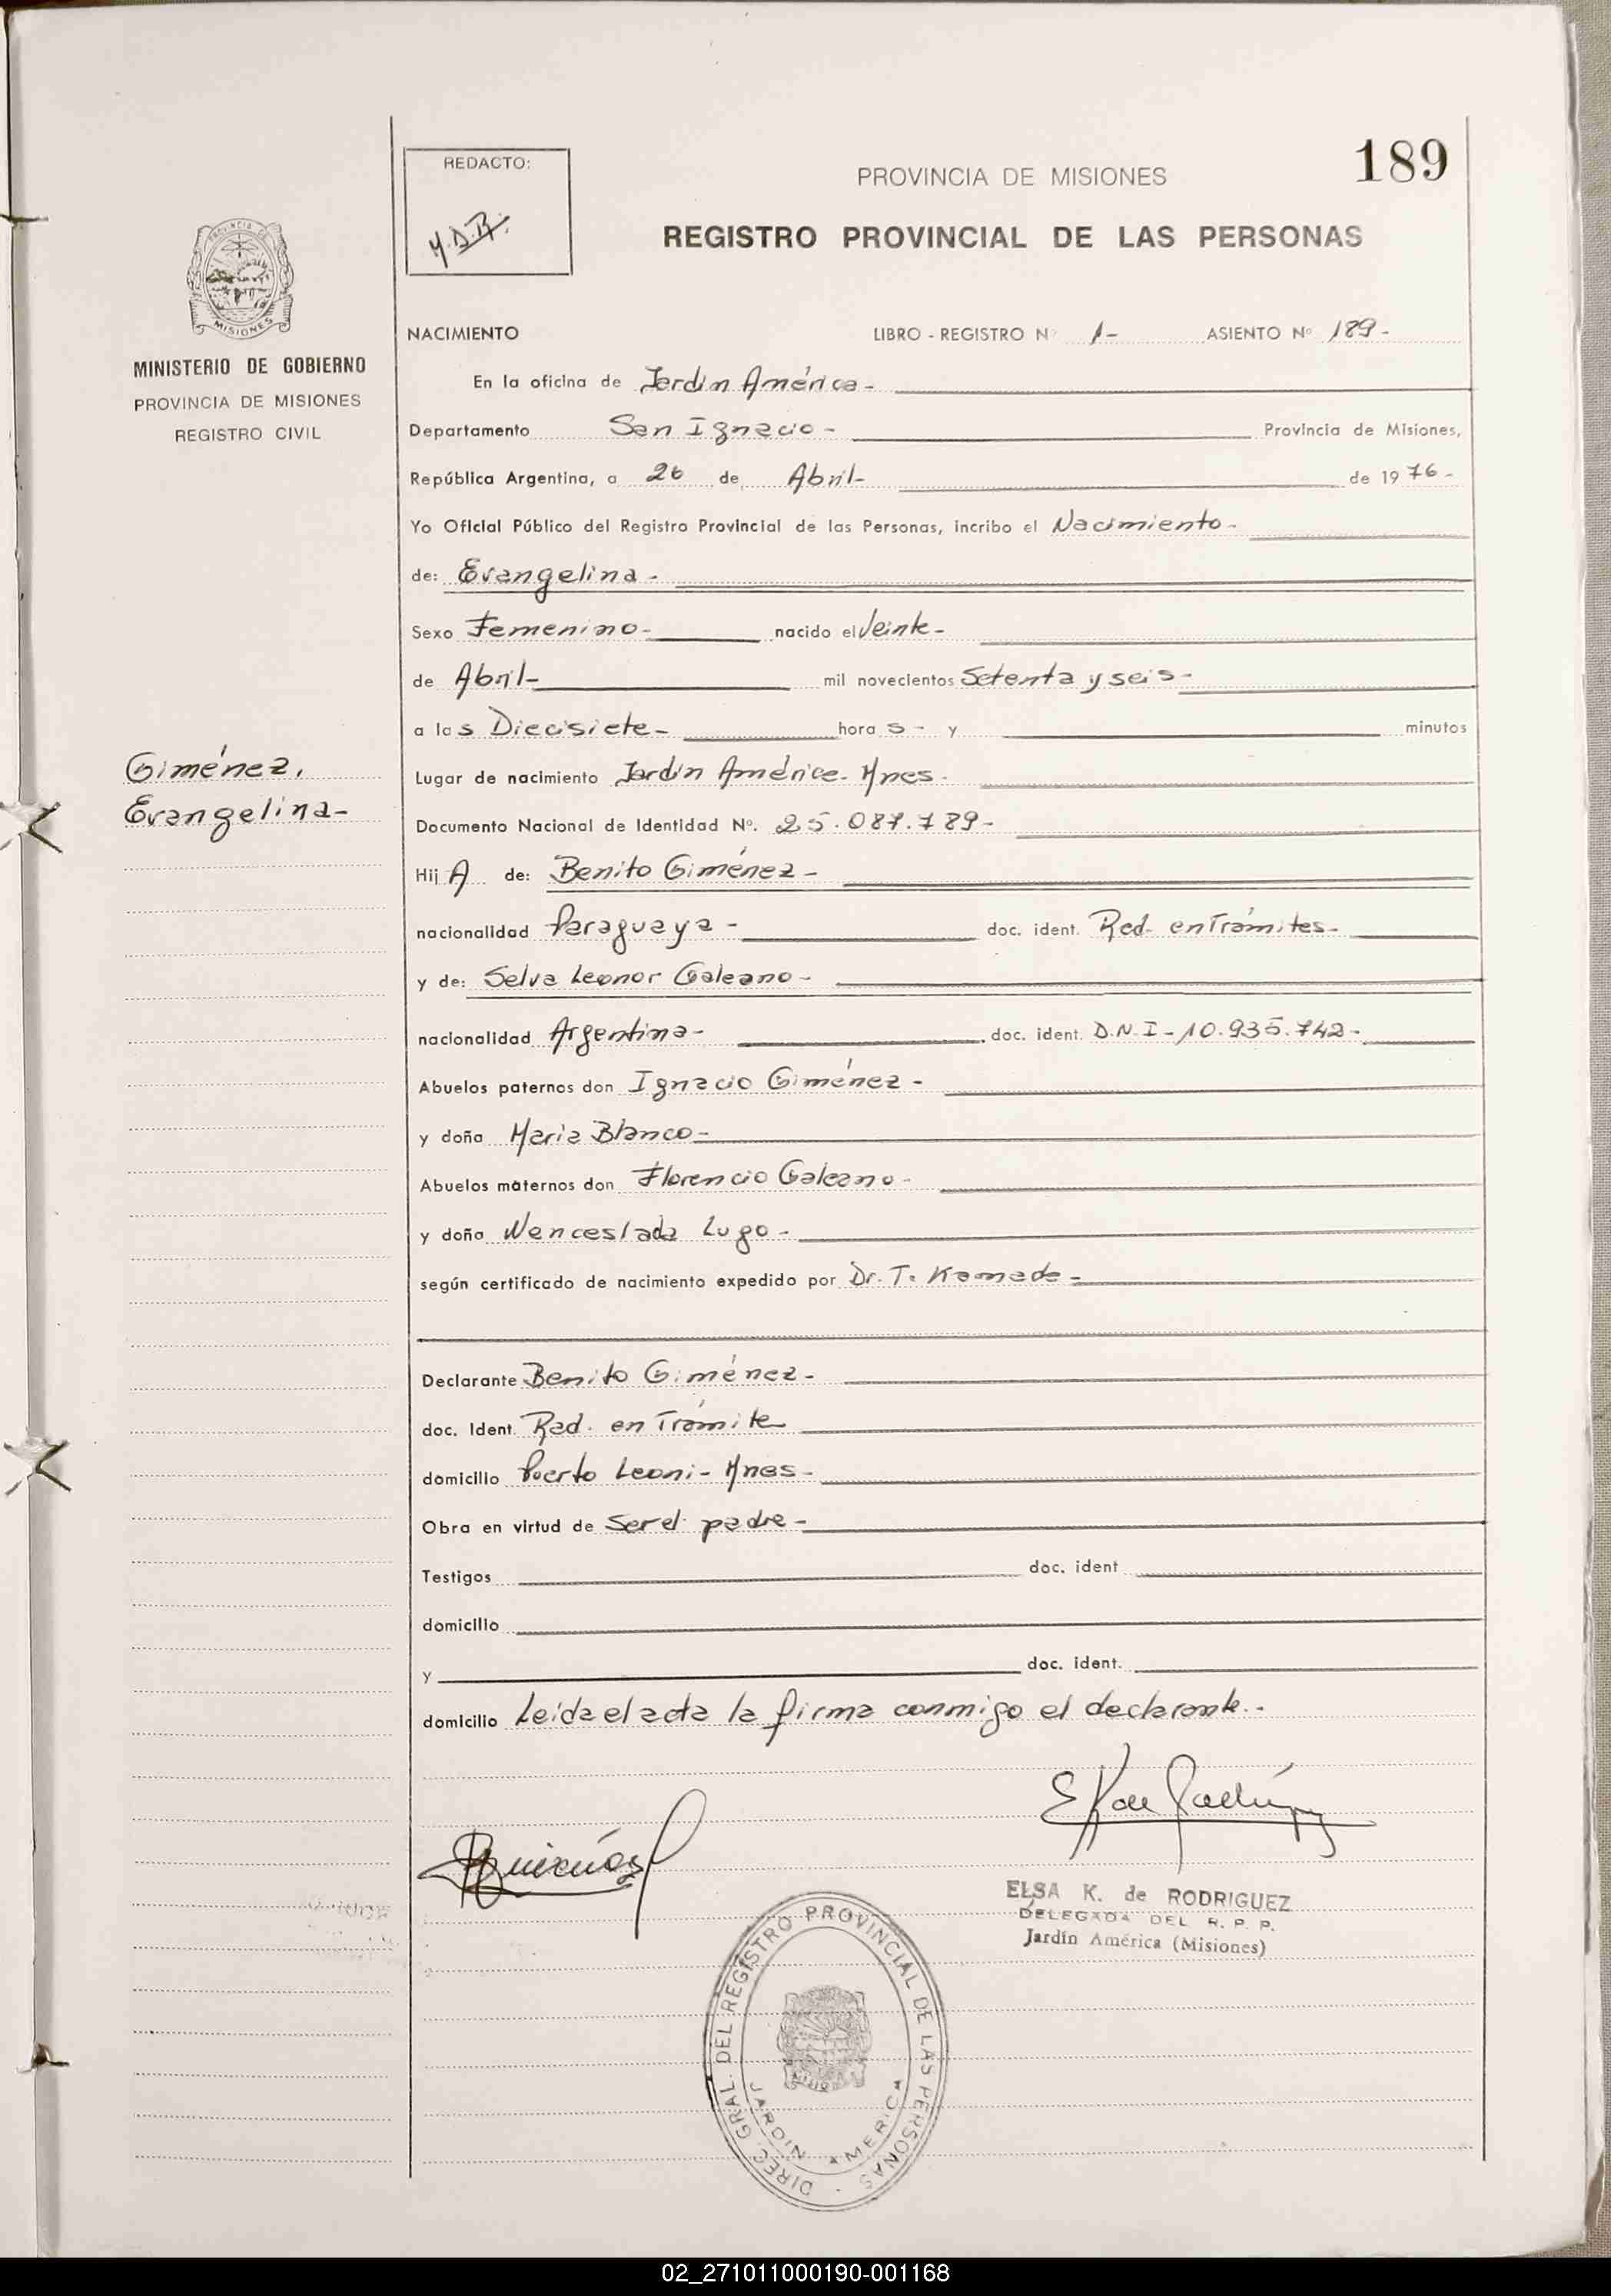 189
REDACTO:
PROVINCIA DE MISIONES
REGISTRO PROVINCIAL DE LAS PERSONAS
PROVINCIA DE
MISIONES
MINISTERIO DE GOBIERNO
PROVINCIA DE MISIONES
REGISTRO CIVIL
Giménez,
Evangelina-
NACIMIENTO LIBRO - REGISTRO Nº 1- ASIENTO Nº 189-
En la oficina de Jardín América-
Departamento San Ignacio- Provincia de Misiones,
República Argentina, a 26 de Abril- de 1976-
Yo Oficial Público del Registro Provincial de las Personas, incribo el Nacimiento-
de: Evangelina-
Sexo Femenino- nacido el Veinte-
de Abril- mil novecientos Setenta y seis-
a las Diecisiete- hora s- y minutos
Lugar de nacimiento Jardín América- Mnes-
Documento Nacional de Identidad Nº. 25.087.789-
Hij A de: Benito Giménez-
nacionalidad Paraguaya- doc. ident. Rad- en Trámites-
y de: Selva Leonor Galeano-
nacionalidad Argentina- doc. ident. D.N.I-10.935.742-
Abuelos paternos don Ignacio Giménez-
y doña Maria Blanco-
Abuelos maternos don Florencio Galeano-
y doña Wenceslada Lugo-
según certificado de nacimiento expedido por Dr. T. Kamada-
Declarante Benito Giménez-
doc. Ident. Rad. en Trámite
domicilio Puerto Leoni- Mnes-
Obra en virtud de Ser el padre-
Testigos doc. ident
domicilio
y doc. ident.
domicilio Leida el acta la firma conmigo el declarante.-
ELSA K. de RODRIGUEZ
DELEGADA DEL R. P. P.
Jardín América (Misiones)
DIREC. GRAL. DEL REGISTRO PROVINCIAL DE LAS PERSONAS -
JARDIN AMERICA
02_271011000190-001168